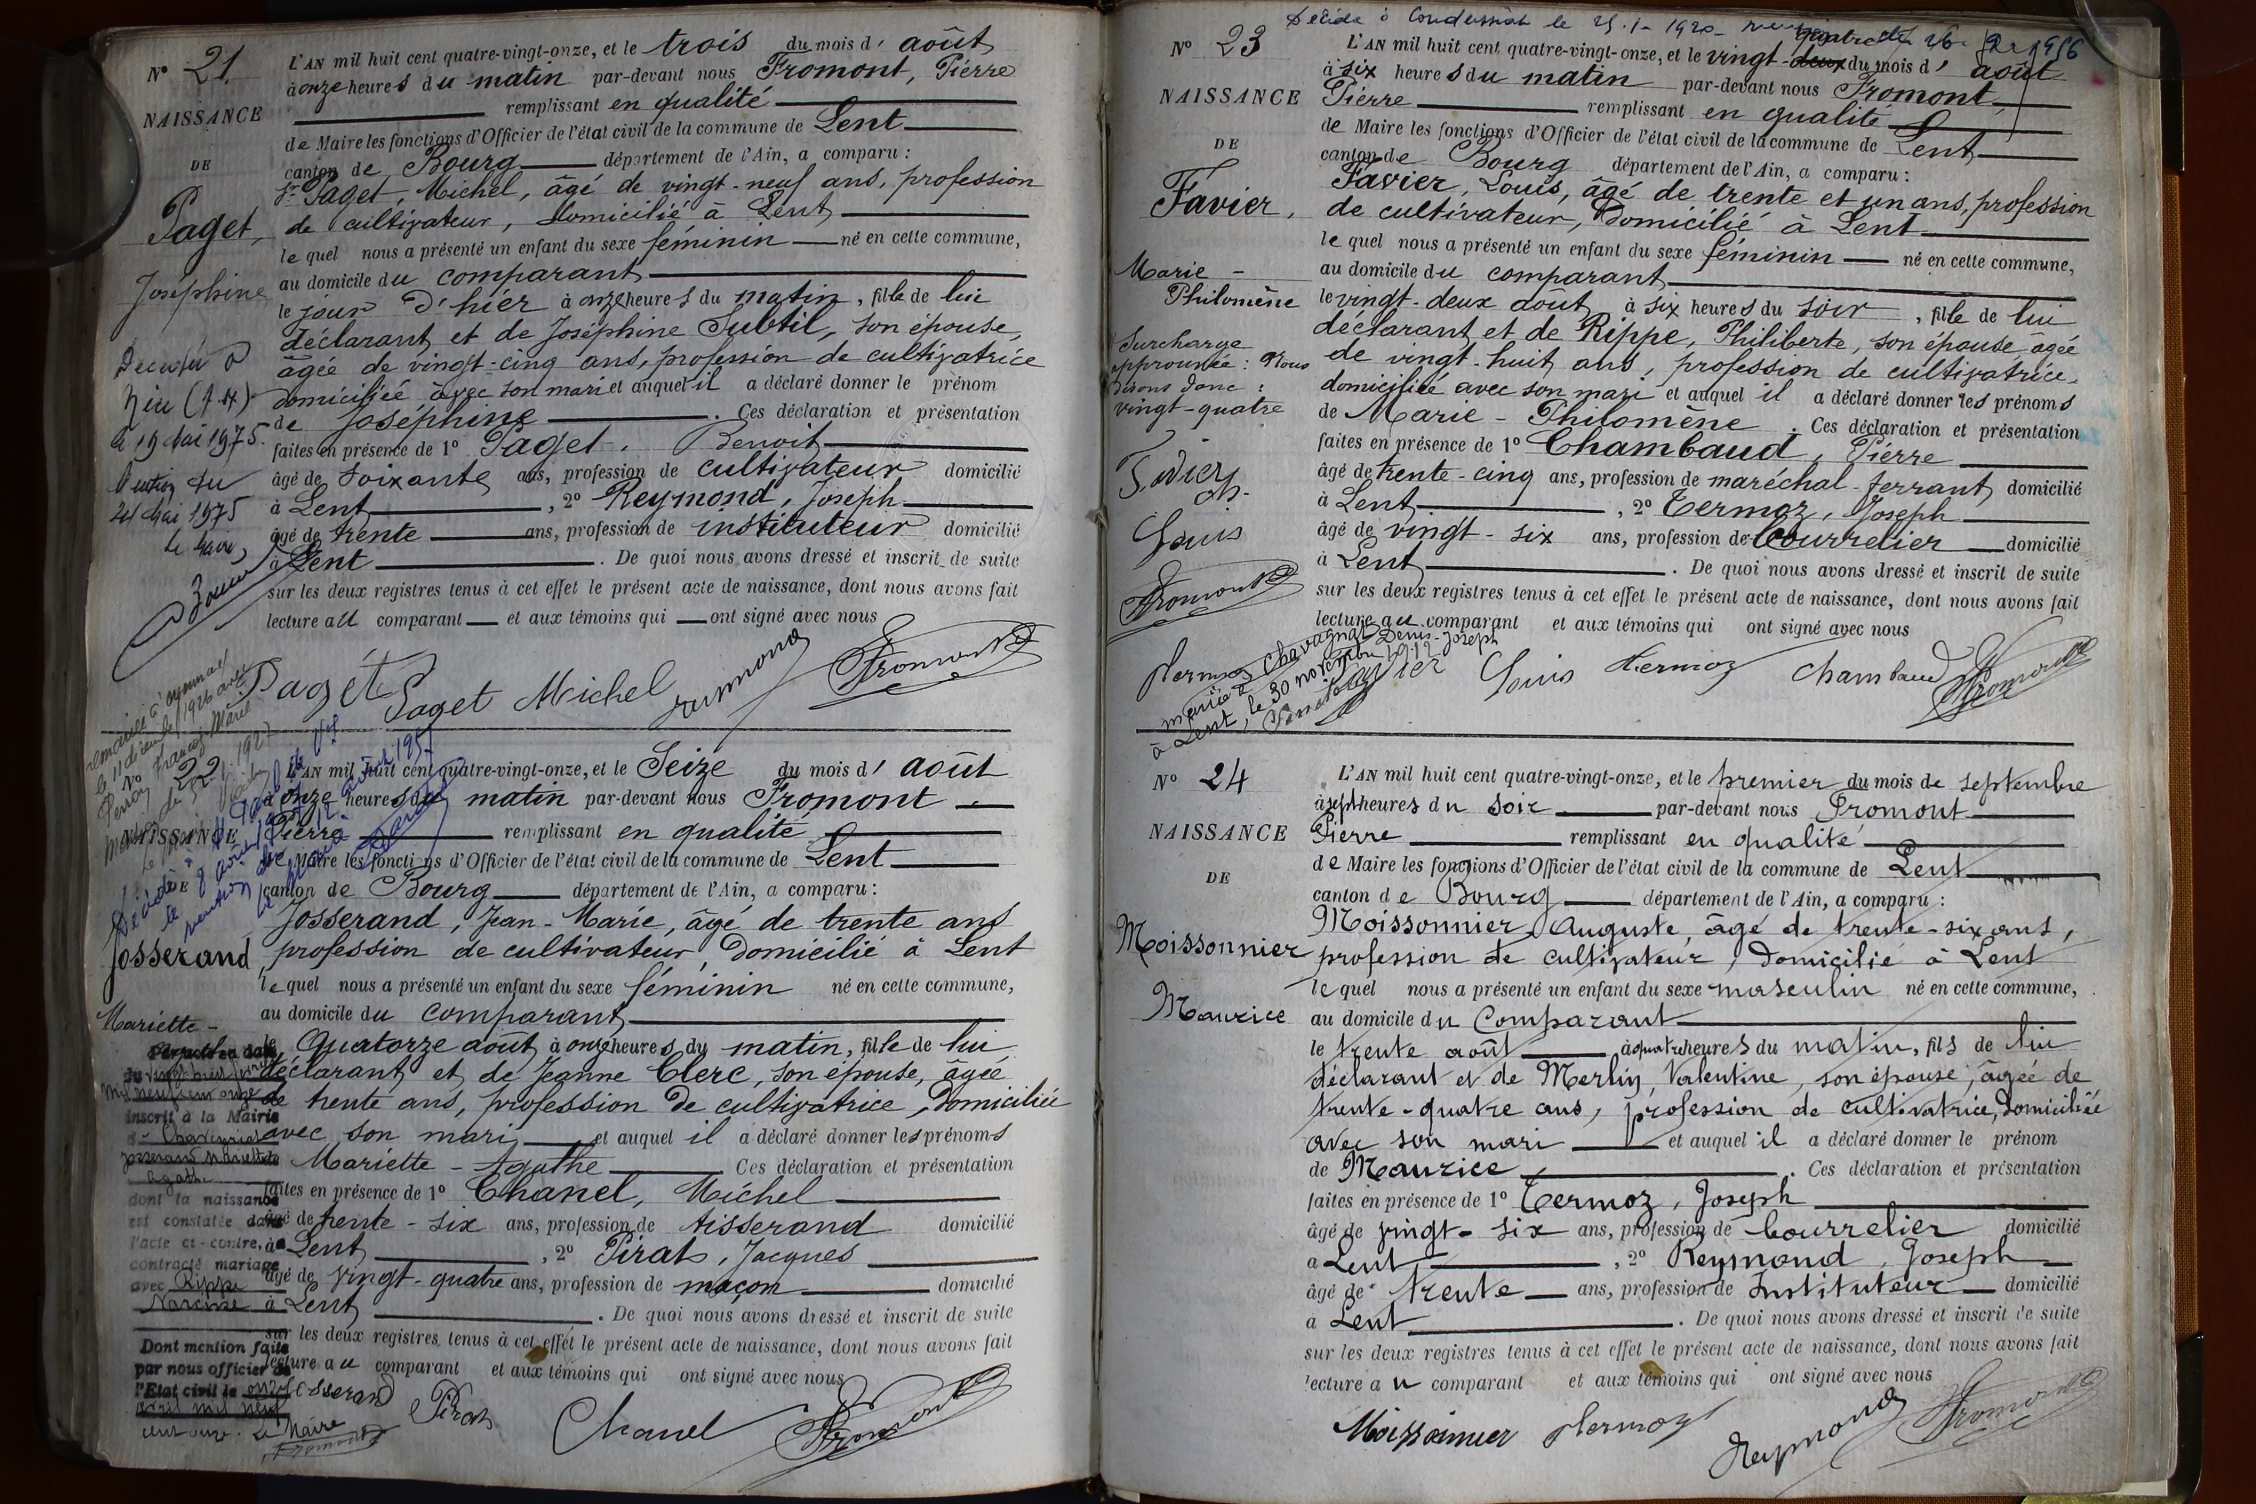 N° 21
NAISSANCE
DE
Paget,
Joséphine
L'AN mil huit cent quatre-vingt-onze, et le trois du mois d' août
à onze heures du matin par-devant nous Fromont, Pierre
remplissant en qualité
de Maire les fonctions d'Officier de l'état civil de la commune de Lent
canton de Bourg département de l'Ain, a comparu :
Sr Paget, Michel, âgé de vingt-neuf ans, profession
de cultivateur, domicilié à Lent
lequel nous a présenté un enfant du sexe féminin né en cette commune,
au domicile du comparant
le jour d'hier à onze heures du matin, fille de lui
déclarant et de Joséphine Subtil, son épouse,
âgée de vingt-cinq ans, profession de cultivatrice
domiciliée avec son mari et auquel il a déclaré donner le prénom
de Joséphine. Ces déclaration et présentation
faites en présence de 1° Paget, Benoit
âgé de soixante ans, profession de cultivateur domicilié
à Lent, 2° Reymond, Joseph
âgé de trente ans, profession de instituteur domicilié
à Lent. De quoi nous avons dressé et inscrit de suite
sur les deux registres tenus à cet effet le présent acte de naissance, dont nous avons fait
lecture au comparant et aux témoins qui ont signé avec nous
Décédée à
le 19 Mai 1975.
Mention du
21 Mai 1975
Le Maire,
Paget Paget Michel Reymond Fromont
N° 22
NAISSANCE
DE
Josserand
Mariette-
L'AN mil huit cent quatre-vingt-onze, et le Seize du mois d' août
à onze heures du matin par-devant nous Fromont
Pierre remplissant en qualité
de Maire les fonctions d'Officier de l'état civil de la commune de Lent
canton de Bourg département de l'Ain, a comparu :
Josserand, Jean-Marie, âgé de trente ans
profession de cultivateur, domicilié à Lent
lequel nous a présenté un enfant du sexe féminin né en cette commune,
au domicile du comparant
le Quatorze août à onze heures du matin, fille de lui
déclarant et de Jeanne Clerc, son épouse, âgée
de trente ans, profession de cultivatrice, domiciliée
avec son mari et auquel il a déclaré donner les prénoms
Mariette - Agathe Ces déclaration et présentation
faites en présence de 1° Chanel, Michel
âgé de trente-six ans, profession de tisserand domicilié
à Lent, 2° Pirat, Jacques
âgé de vingt-quatre ans, profession de maçon domicilié
à Lent. De quoi nous avons dressé et inscrit de suite
sur les deux registres tenus à cet effet le présent acte de naissance, dont nous avons fait
lecture au comparant et aux témoins qui ont signé avec nous
Par acte en date
inscrit à la Mairie
dont la naissance
est constatée dans
l'acte ci-contre, a
contracté mariage
avec Rippe
Narcisse
Dont mention faite
par nous officier de
l'Etat civil le onze
avril mil neuf
cent onze. Le Maire
Fromont
Josserand Pirat Chanel Fromont
N° 23
NAISSANCE
DE
Favier,
Marie-
Philomène
Décédée à Condeissiat le
L'AN mil huit cent quatre-vingt-onze, et le vingt-quatre du mois d' août
à six heures du matin par-devant nous Fromont,
Pierre remplissant en qualité
de Maire les fonctions d'Officier de l'état civil de la commune de Lent
canton de Bourg département de l'Ain, a comparu :
Favier, Louis, âgé de trente et un ans, profession
de cultivateur, domicilié à Lent
lequel nous a présenté un enfant du sexe féminin né en cette commune,
au domicile du comparant
le vingt-deux août à six heures du soir, fille de lui
déclarant et de Rippe, Philiberte, son épouse âgée
de vingt-huit ans, profession de cultivatrice,
domiciliée avec son mari et auquel il a déclaré donner les prénoms
de Marie - Philomène. Ces déclaration et présentation
faites en présence de 1° Chambaud, Pierre
âgé de trente-cinq ans, profession de maréchal-ferrant domicilié
à Lent, 2° Termoz, Joseph
âgé de vingt-six ans, profession de Bourrelier domicilié
à Lent. De quoi nous avons dressé et inscrit de suite
sur les deux registres tenus à cet effet le présent acte de naissance, dont nous avons fait
lecture au comparant et aux témoins qui ont signé avec nous
Surcharge
approuvée : Nous
disons donc :
vingt-quatre
Favier
Louis
Fromont
Termoz
mariée à Chavagnat Denis-Joseph
à Lent, le 30 novembre 1912
Favier Louis Termoz Chambaud Fromont
N° 24
NAISSANCE
DE
Moissonnier
Maurice
L'AN mil huit cent quatre-vingt-onze, et le premier du mois de septembre
à sept heures du soir par-devant nous Fromont
Pierre remplissant en qualité
de Maire les fonctions d'Officier de l'état civil de la commune de Lent
canton de Bourg département de l'Ain, a comparu :
Moissonnier, Auguste, âgé de trente-six ans,
profession de cultivateur, domicilié à Lent
lequel nous a présenté un enfant du sexe masculin né en cette commune,
au domicile du Comparant
le trente août à quatre heures du matin, fils de lui
déclarant et de Merlin, Valentine, son épouse, âgée de
trente-quatre ans, profession de cultivatrice, domiciliée
avec son mari et auquel il a déclaré donner le prénom
de Maurice. Ces déclaration et présentation
faites en présence de 1° Termoz, Joseph
âgé de vingt-six ans, profession de bourrelier domicilié
à Lent, 2° Reymond, Joseph
âgé de trente ans, profession de Instituteur domicilié
à Lent. De quoi nous avons dressé et inscrit de suite
sur les deux registres tenus à cet effet le présent acte de naissance, dont nous avons fait
lecture au comparant et aux témoins qui ont signé avec nous
Moissonnier Termoz Reymond Fromont